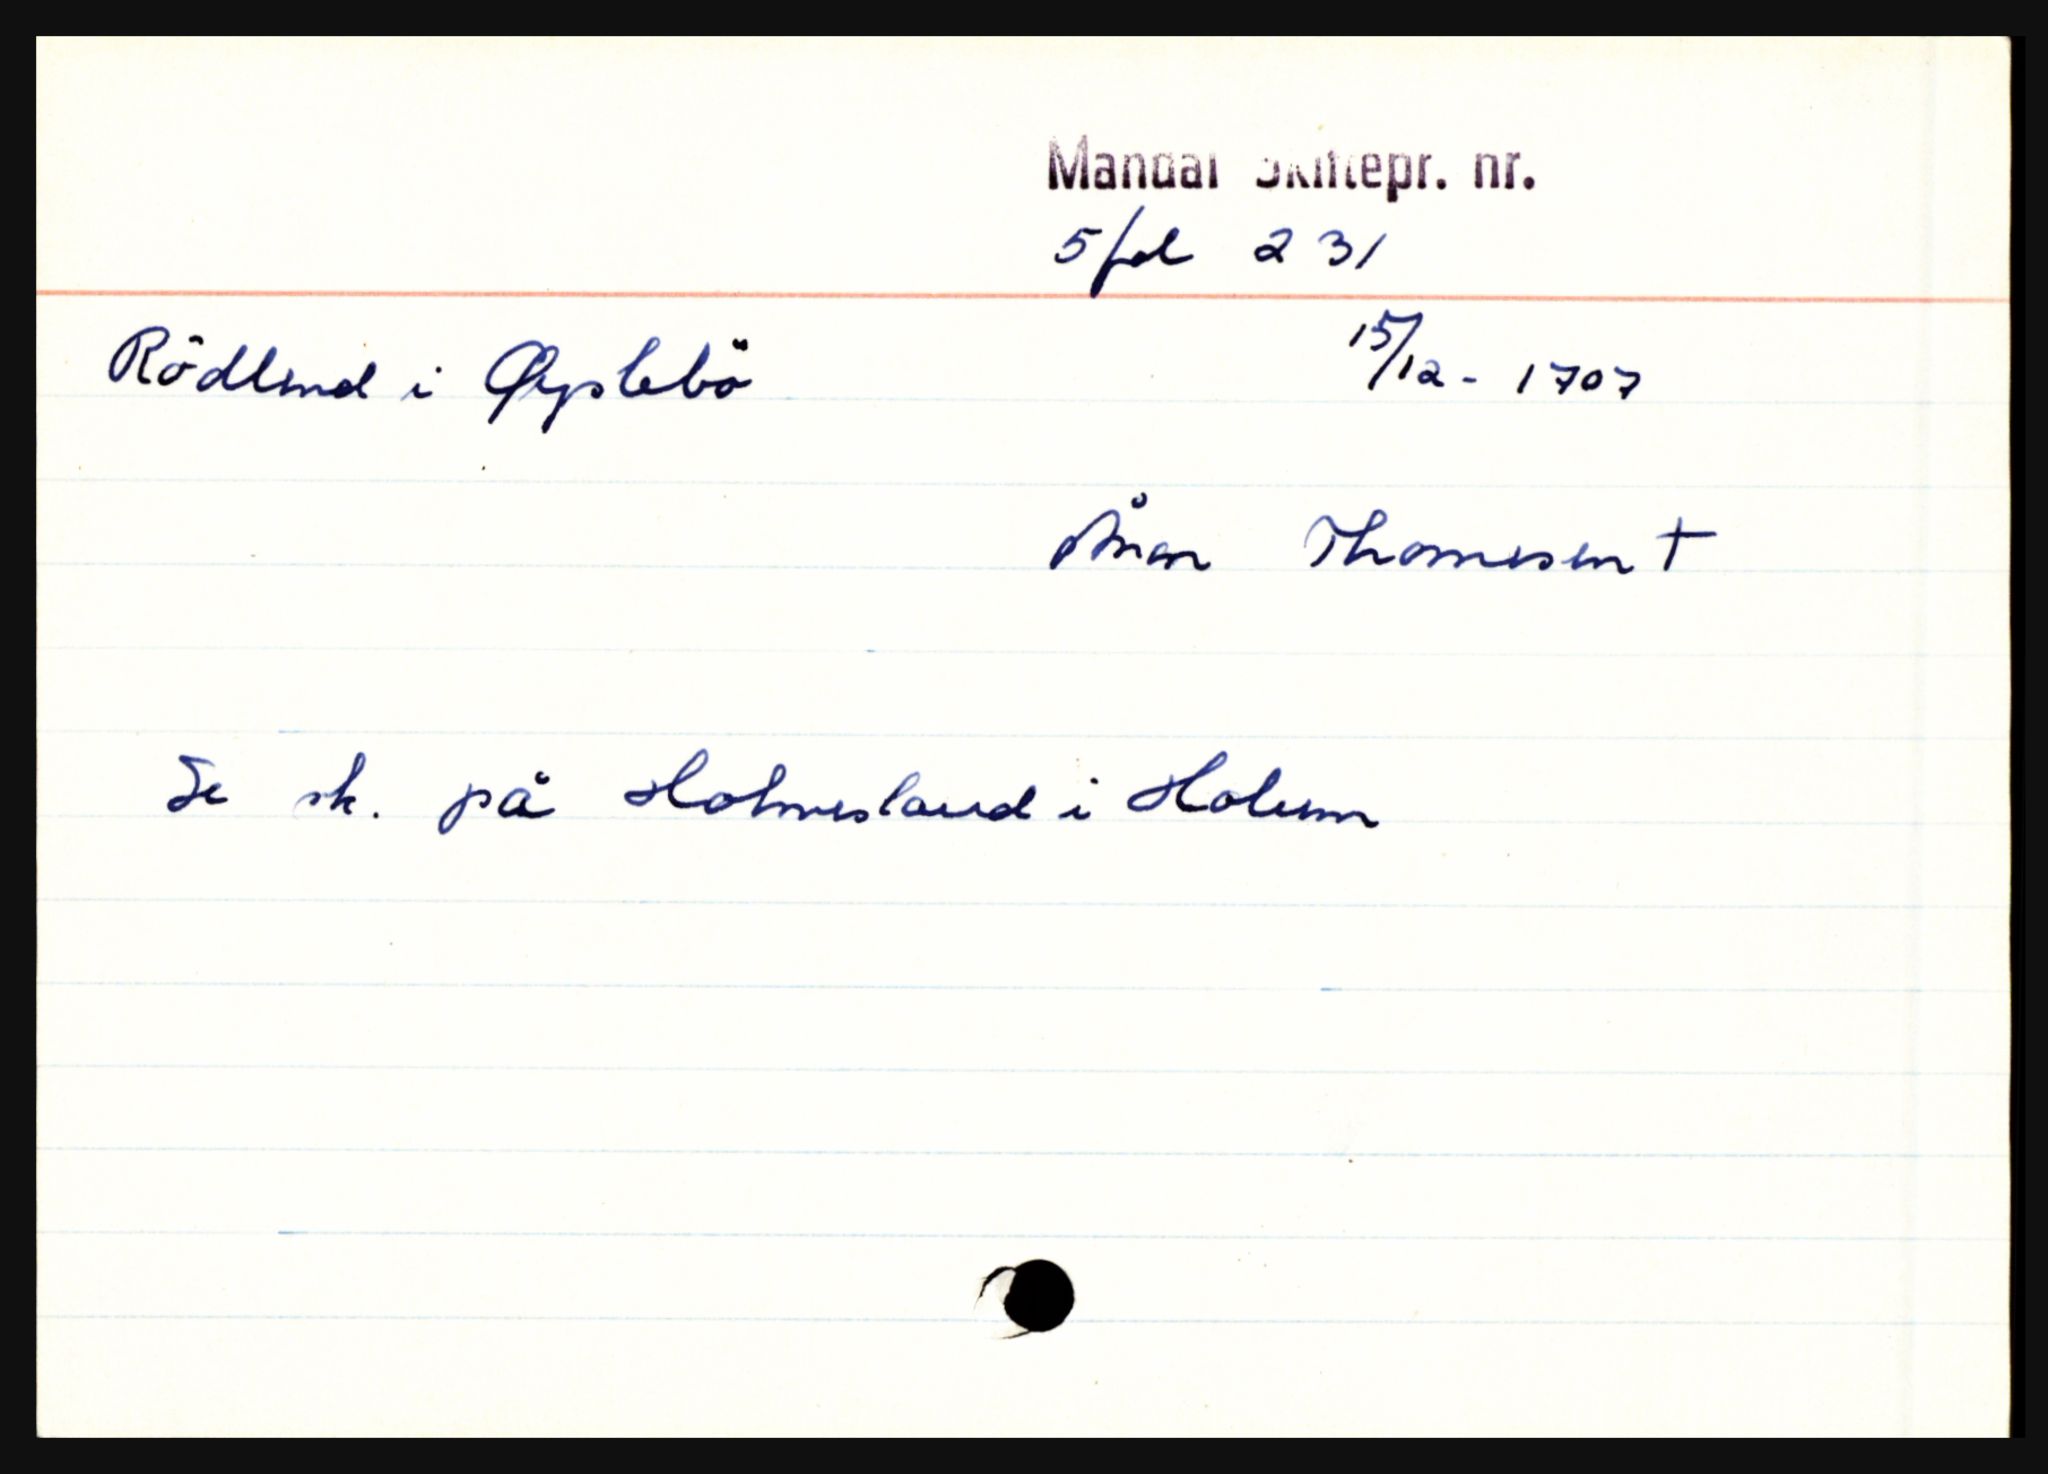 Mandal Skiftepr. nr.
5 fol 231
Rödland i Øyslebö 15/12 - 1707
Ånen Thomesen †
Se sk. på Holmesland i Holum